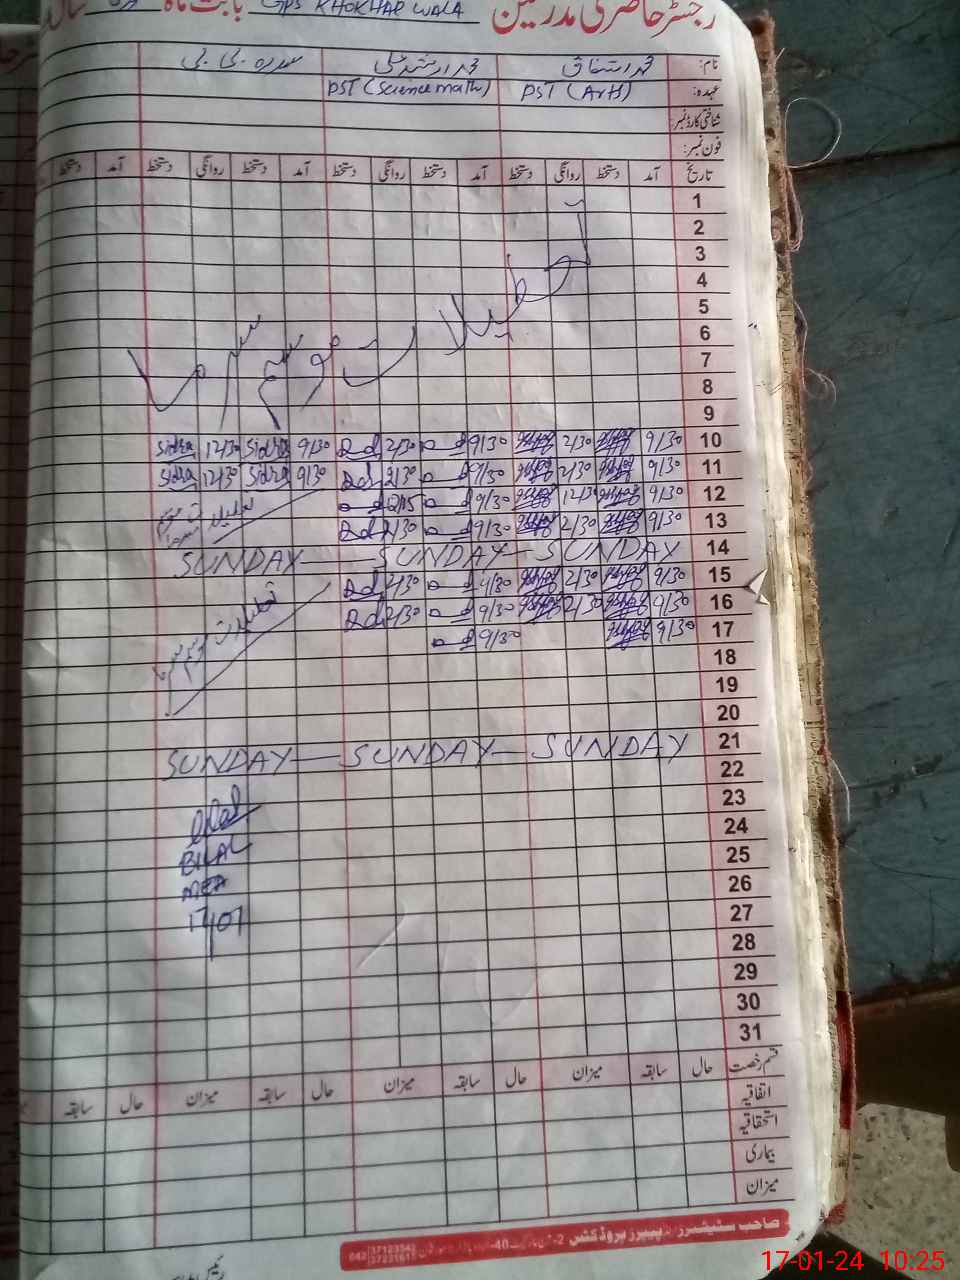 رجسٹر حاضری مدرسین GPS KHOKHAR WALA بابت ماہ سال
نام: محمد اشفاق محمد ارشد علی سدرہ بی بی
عہدہ: PST (Arts) PST (Science math)
شناختی کارڈ نمبر:
فون نمبر:
تاریخ آمد دستخط روانگی دستخط آمد دستخط روانگی دستخط آمد دستخط روانگی دستخط آمد دستخط
1
2
3
4
5
6
7
8
9
تعطیلات موسم سرما
10 9/30 2/30 9/30 2/30 9/30 Sidra 12/30 Sidra
11 9/30 2/30 9/30 2/30 9/30 Sidra 12/30 Sidra
12 9/30 12/30 9/30 12/15
13 9/30 2/30 9/30 2/30
14 SUNDAY — SUNDAY — SUNDAY
15 9/30 2/30 9/30 2/30
16 9/30 2/30 9/30 2/30
17 9/30 9/30
تعطیلات موسم سرما
18
19
20
21 SUNDAY — SUNDAY — SUNDAY
22
23
24
25
26
27
28
29
30
31
BILAL
MEA
17/01
قسم رخصت حال سابقہ میزان حال سابقہ میزان حال سابقہ میزان حال سابقہ
اتفاقیہ
استحقاقیہ
بیماری
میزان
صاحب سٹیشنرز اینڈ پیپرز پروڈکٹس
042 37123542
37231615
17-01-24 10:25